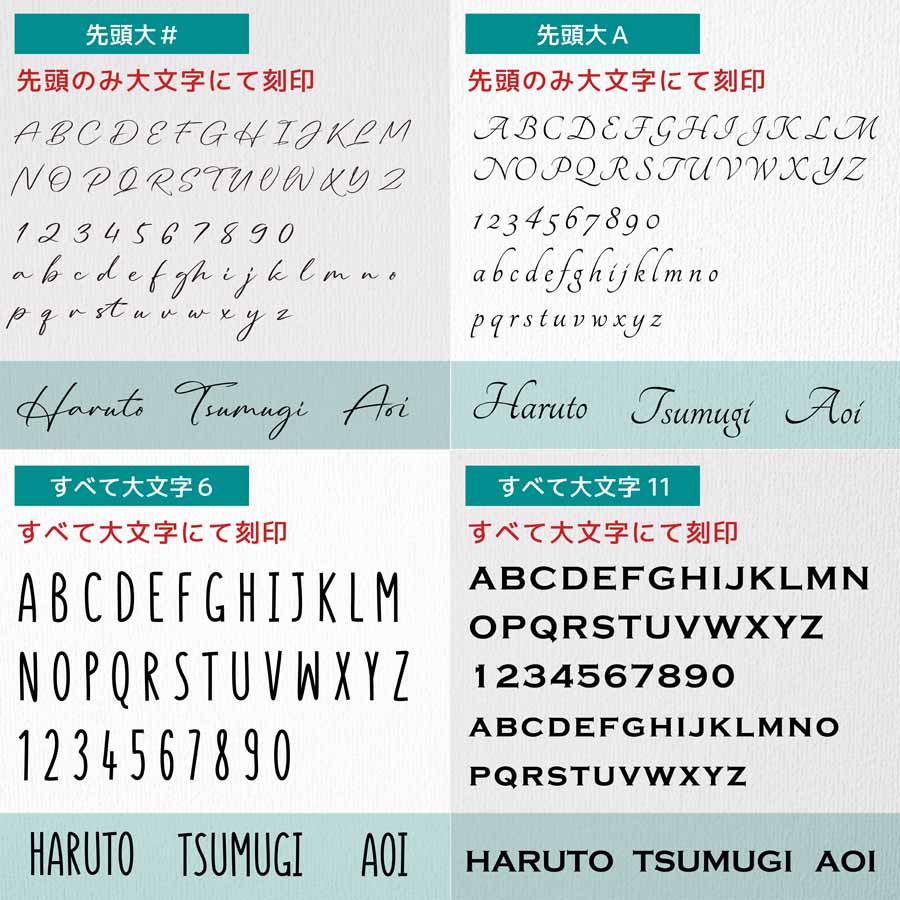 先頭大#
先頭のみ大文字にて刻印
ABCDEFGHIJKLM
NOPQRSTUVWXYZ
1234567890
abcdefghijklmno
pqrstuvwxyz
Haruto Tsumugi Aoi
先頭大A
先頭のみ大文字にて刻印
ABCDEFGHIJKLM
NOPQRSTUVWXYZ
1234567890
abcdefghijklmno
pqrstuvwxyz
Haruto Tsumugi Aoi
すべて大文字6
すべて大文字にて刻印
ABCDEFGHIJKLM
NOPQRSTUVWXYZ
1234567890
HARUTO TSUMUGI AOI
すべて大文字11
すべて大文字にて刻印
ABCDEFGHIJKLMN
OPQRSTUVWXYZ
1234567890
ABCDEFGHIJKLMNO
PQRSTUVWXYZ
HARUTO TSUMUGI AOI